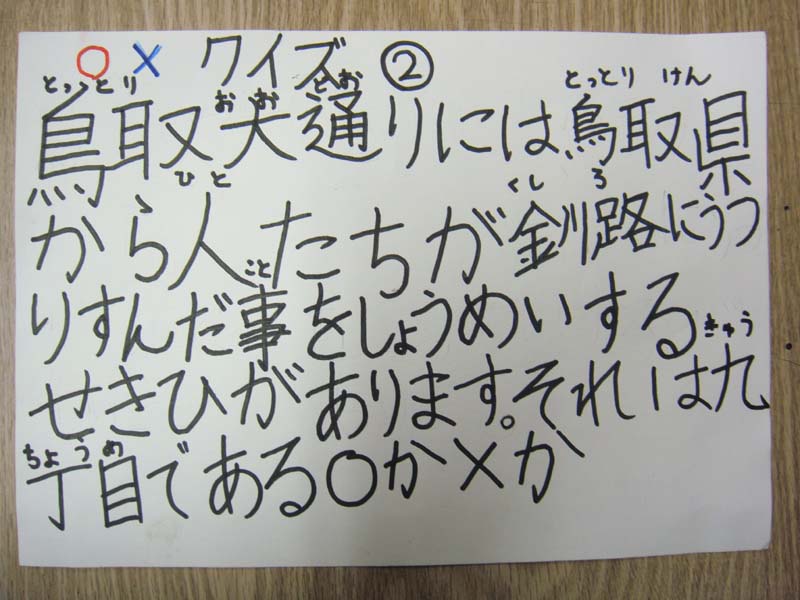 ○× クイズ②
とっとり おお とお とっとり けん
鳥取大通りには鳥取県
ひと くしろ
から人たちが釧路にうつ
こと
りすんだ事をしょうめいする
きゅう
せきひがあります。それは九
ちょうめ
丁目である○か×か